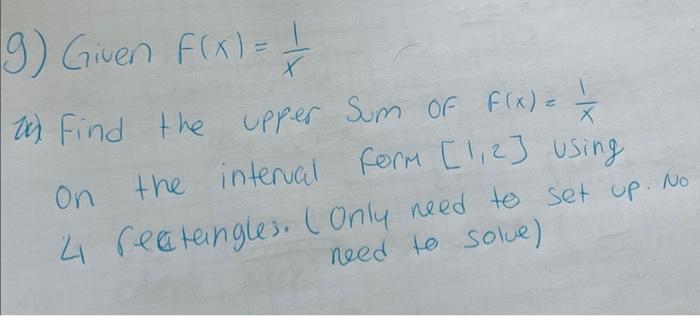 9) Given F(x) = 1/x
a) Find the upper Sum OF F(x) = 1/x
on the interval form [1,2] using
4 rectangles. (Only need to set up. No
need to solve)